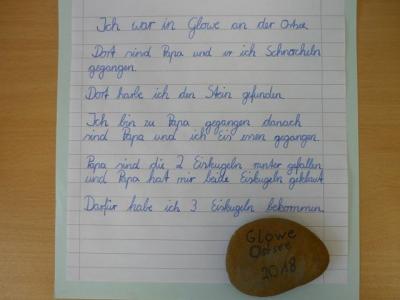 Ich war in Glowe an der Ostsee
Dort sind Papa und er ich Schnorcheln
gegangen.
Dort habe ich den Stein gefunden.
Ich bin zu Papa gegangen danach
sind Papa und ich Eis essen gegangen.
Papa sind die 2 Eiskugeln runter gefallen
und Papa hat mir beide Eiskugeln geklaut.
Dafür habe ich 3 Eiskugeln bekommen.
Glowe
Ostsee
2018